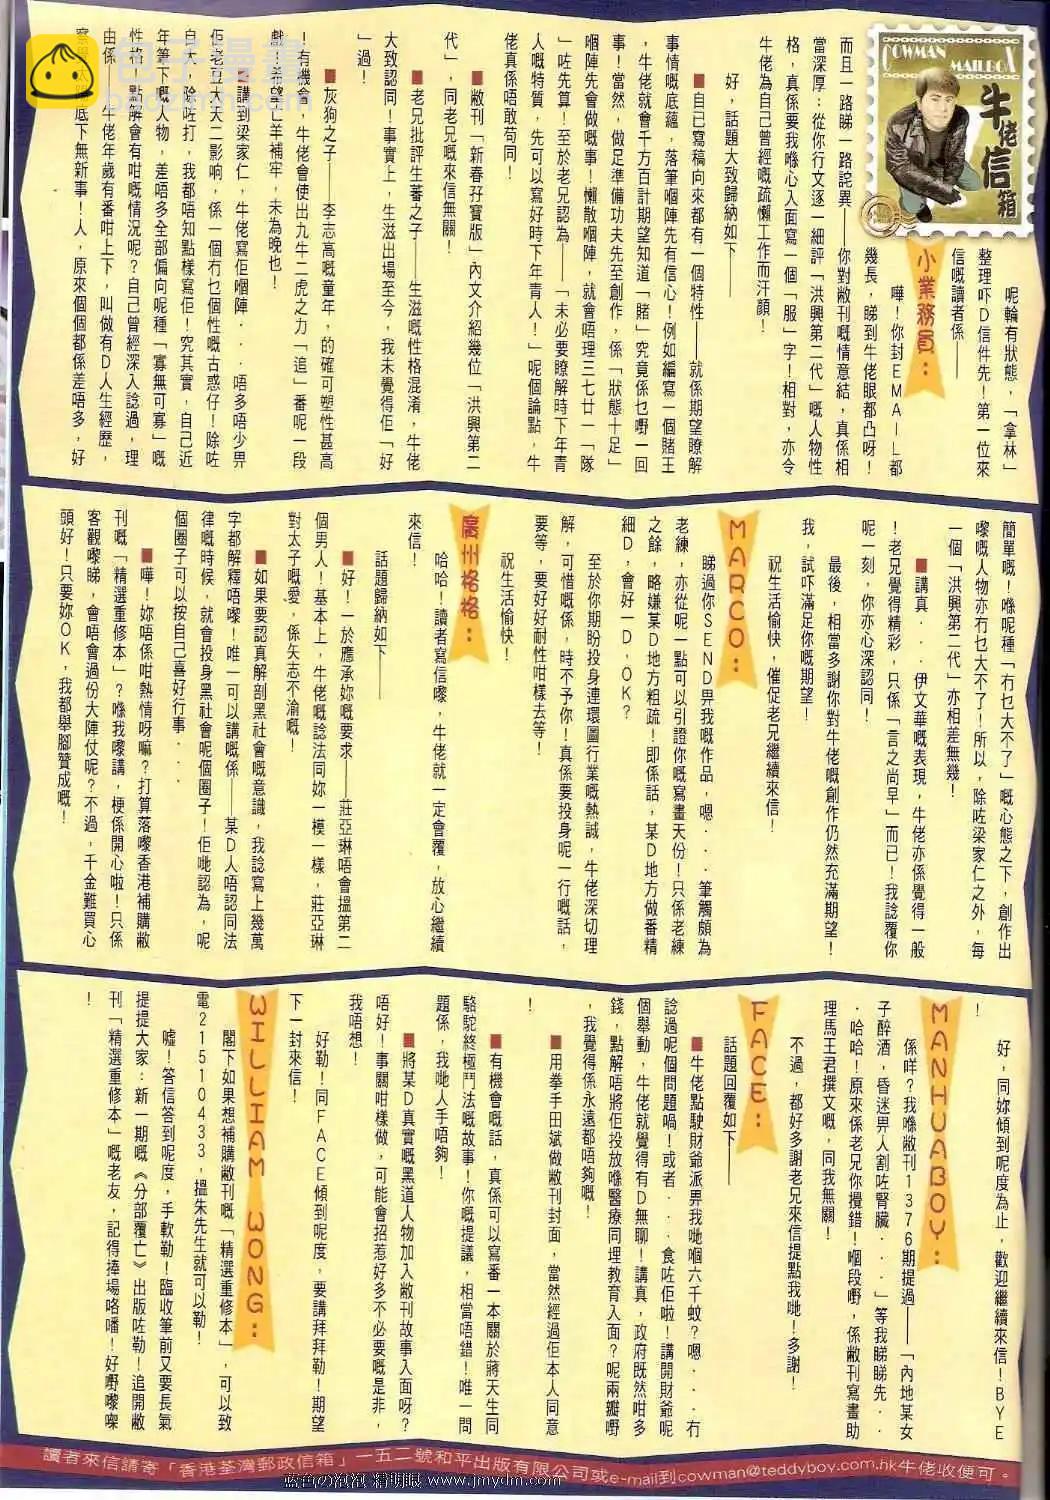 COWMAN MAILBOX
牛佬信箱
呢輪有狀態，「拿林」
整理吓D信件先！第一位來
信嘅讀者係——
小業務員：
嘩！你封EMAIL都
幾長，睇到牛佬眼都凸呀！
而且一路睇一路詫異——你對敝刊嘅情意結，真係相
當深厚：從你行文逐一細評「洪興第二代」嘅人物性
格，真係要我喺心入面寫一個「服」字！相對，亦令
牛佬為自己曾經嘅疏懶工作而汗顏！
好，話題大致歸納如下——
■自己寫稿向來都有一個特性——就係期望瞭解
事情嘅底蘊，落筆嗰陣先有信心！例如編寫一個賭王
，牛佬就會千方百計期望知道「賭」究竟係乜嘢一回
事！當然，做足準備功夫先至創作，係「狀態十足」
嗰陣先會做嘅事！懶散嗰陣，就會唔理三七廿一「隊
」咗先算！至於老兄認為——「未必要瞭解時下年青
人嘅特質，先可以寫好時下年青人！」呢個論點，牛
佬真係唔敢苟同！
■敝刊「新春孖寶版」內文介紹幾位「洪興第二
代」，同老兄嘅來信無關！
■老兄批評生蕃之子——生滋嘅性格混淆，牛佬
大致認同！事實上，生滋出場至今，我未覺得佢「好
」過！
■灰狗之子——李志高嘅童年，的確可塑性甚高
！有機會，牛佬會使出九牛二虎之力「追」番呢一段
戲，希望亡羊補牢，未為晚也！
■講到梁家仁，牛佬寫佢嗰陣．．唔多唔少畀
佢老豆大大二影响，係一個冇乜個性嘅古惑仔！除咗
自大，除咗打，我都唔知點樣寫佢！究其實，自己近
年筆下嘅人物，差唔多全部偏向呢種「寡無可寡」嘅
性格！點解會有咁嘅情況呢？自己曾經深入諗過，理
由係——牛佬年歲有番咁上下，叫做有D人生經歷，
察覺太陽底下無新事！人，原來個個都係差唔多，好
簡單嘅！喺呢種「冇乜大不了」嘅心態之下，創作出
嚟嘅人物亦冇乜大不了！所以，除咗梁家仁之外，每
一個「洪興第二代」亦相差無幾！
■講真．．．伊文華嘅表現，牛佬亦係覺得一般
！老兄覺得精彩，只係「言之尚早」而已！我諗覆你
呢一刻，你亦心深認同！
最後，相當多謝你對牛佬嘅創作仍然充滿期望！
我，試吓滿足你嘅期望！
祝生活愉快，催促老兄繼續來信！
MARCO：
睇過你SEND畀我嘅作品，嗯．．．筆觸頗為
老練，亦從呢一點可以引證你嘅寫畫天份！只係老練
之餘，略嫌某D地方粗疏！即係話，某D地方做番精
細D，會好一D，OK？
至於你期盼投身連環圖行業嘅熱誠，牛佬深切理
解，可惜嘅係，時不予你！真係要投身呢一行嘅話，
要等，要好好耐性咁樣去等！
祝生活愉快！
廣州格格：
哈哈！讀者寫信嚟，牛佬就一定會覆，放心繼續
來信！
話題歸納如下——
■好！一於應承妳嘅要求——莊亞琳唔會搵第二
個男人！基本上，牛佬嘅諗法同妳一模一樣，莊亞琳
對太子嘅愛，係矢志不渝嘅！
■如果要認真解剖黑社會嘅意識，我諗寫上幾萬
字都解釋唔嚟！唯一可以講嘅係——某D人唔認同法
律嘅時候，就會投身黑社會呢個圈子！佢哋認為，呢
個圈子可以按自己喜好行事．．．
■嘩！妳唔係咁熱情呀嘛？打算落嚟香港補購敝
刊嘅「精選重修本」？喺我嚟講，梗係開心啦！只係
客觀嚟睇，會唔會過份大陣仗呢？不過，千金難買心
頭好！只要妳OK，我都舉腳贊成嘅！
好，同妳傾到呢度為止，歡迎繼續來信！BYE
！
MANHUABOY：
係咩？我喺敝刊1376期提過——「內地某女
子醉酒，昏迷畀人割咗腎臟．．．」等我睇睇先．．
．哈哈！原來係老兄你攪錯！嗰段嘢，係敝刊寫畫助
理馬王君撰文嘅，同我無關！
不過，都好多謝老兄來信提點我哋！多謝！
FACE：
話題回覆如下——
■牛佬點駛財爺派畀我哋嗰六千蚊？嗯．．．冇
諗過呢個問題喎！或者．．．食咗佢啦！講開財爺呢
個舉動，牛佬就覺得有D無聊！講真，政府既然咁多
錢，點解唔將佢投放喺醫療同埋教育入面？呢兩瓣嘢
，我覺得係永遠都唔夠嘅！
■用拳手田斌做敝刊封面，當然經過佢本人同意
！
■有機會嘅話，真係可以寫番一本關於蔣天生同
駱駝終極鬥法嘅故事！你嘅提議，相當唔錯！唯一問
題係，我哋人手唔夠！
■將某D真實嘅黑道人物加入敝刊故事入面呀？
唔好！事關咁樣做，可能會招惹好多不必要嘅是非，
我唔想！
好勒！同FACE傾到呢度，要講拜拜勒！期望
下一封來信！
WILLIAM WONG：
閣下如果想補購敝刊嘅「精選重修本」，可以致
電21510433，搵朱先生就可以勒！
噓！答信答到呢度，手軟勒！臨收筆前又要長氣
提提大家：新一期嘅《分部覆亡》出版咗勒！追開敝
刊「精選重修本」嘅老友，記得捧場咯噃！好嘢嚟㗎
！
讀者來信請寄「香港荃灣郵政信箱」一五二號和平出版有限公司或e-mail到cowman@teddyboy.com.hk牛佬收便可。
包子漫畫
baozimh.com
藍色の泡泡 精明眼 www.jmydm.com